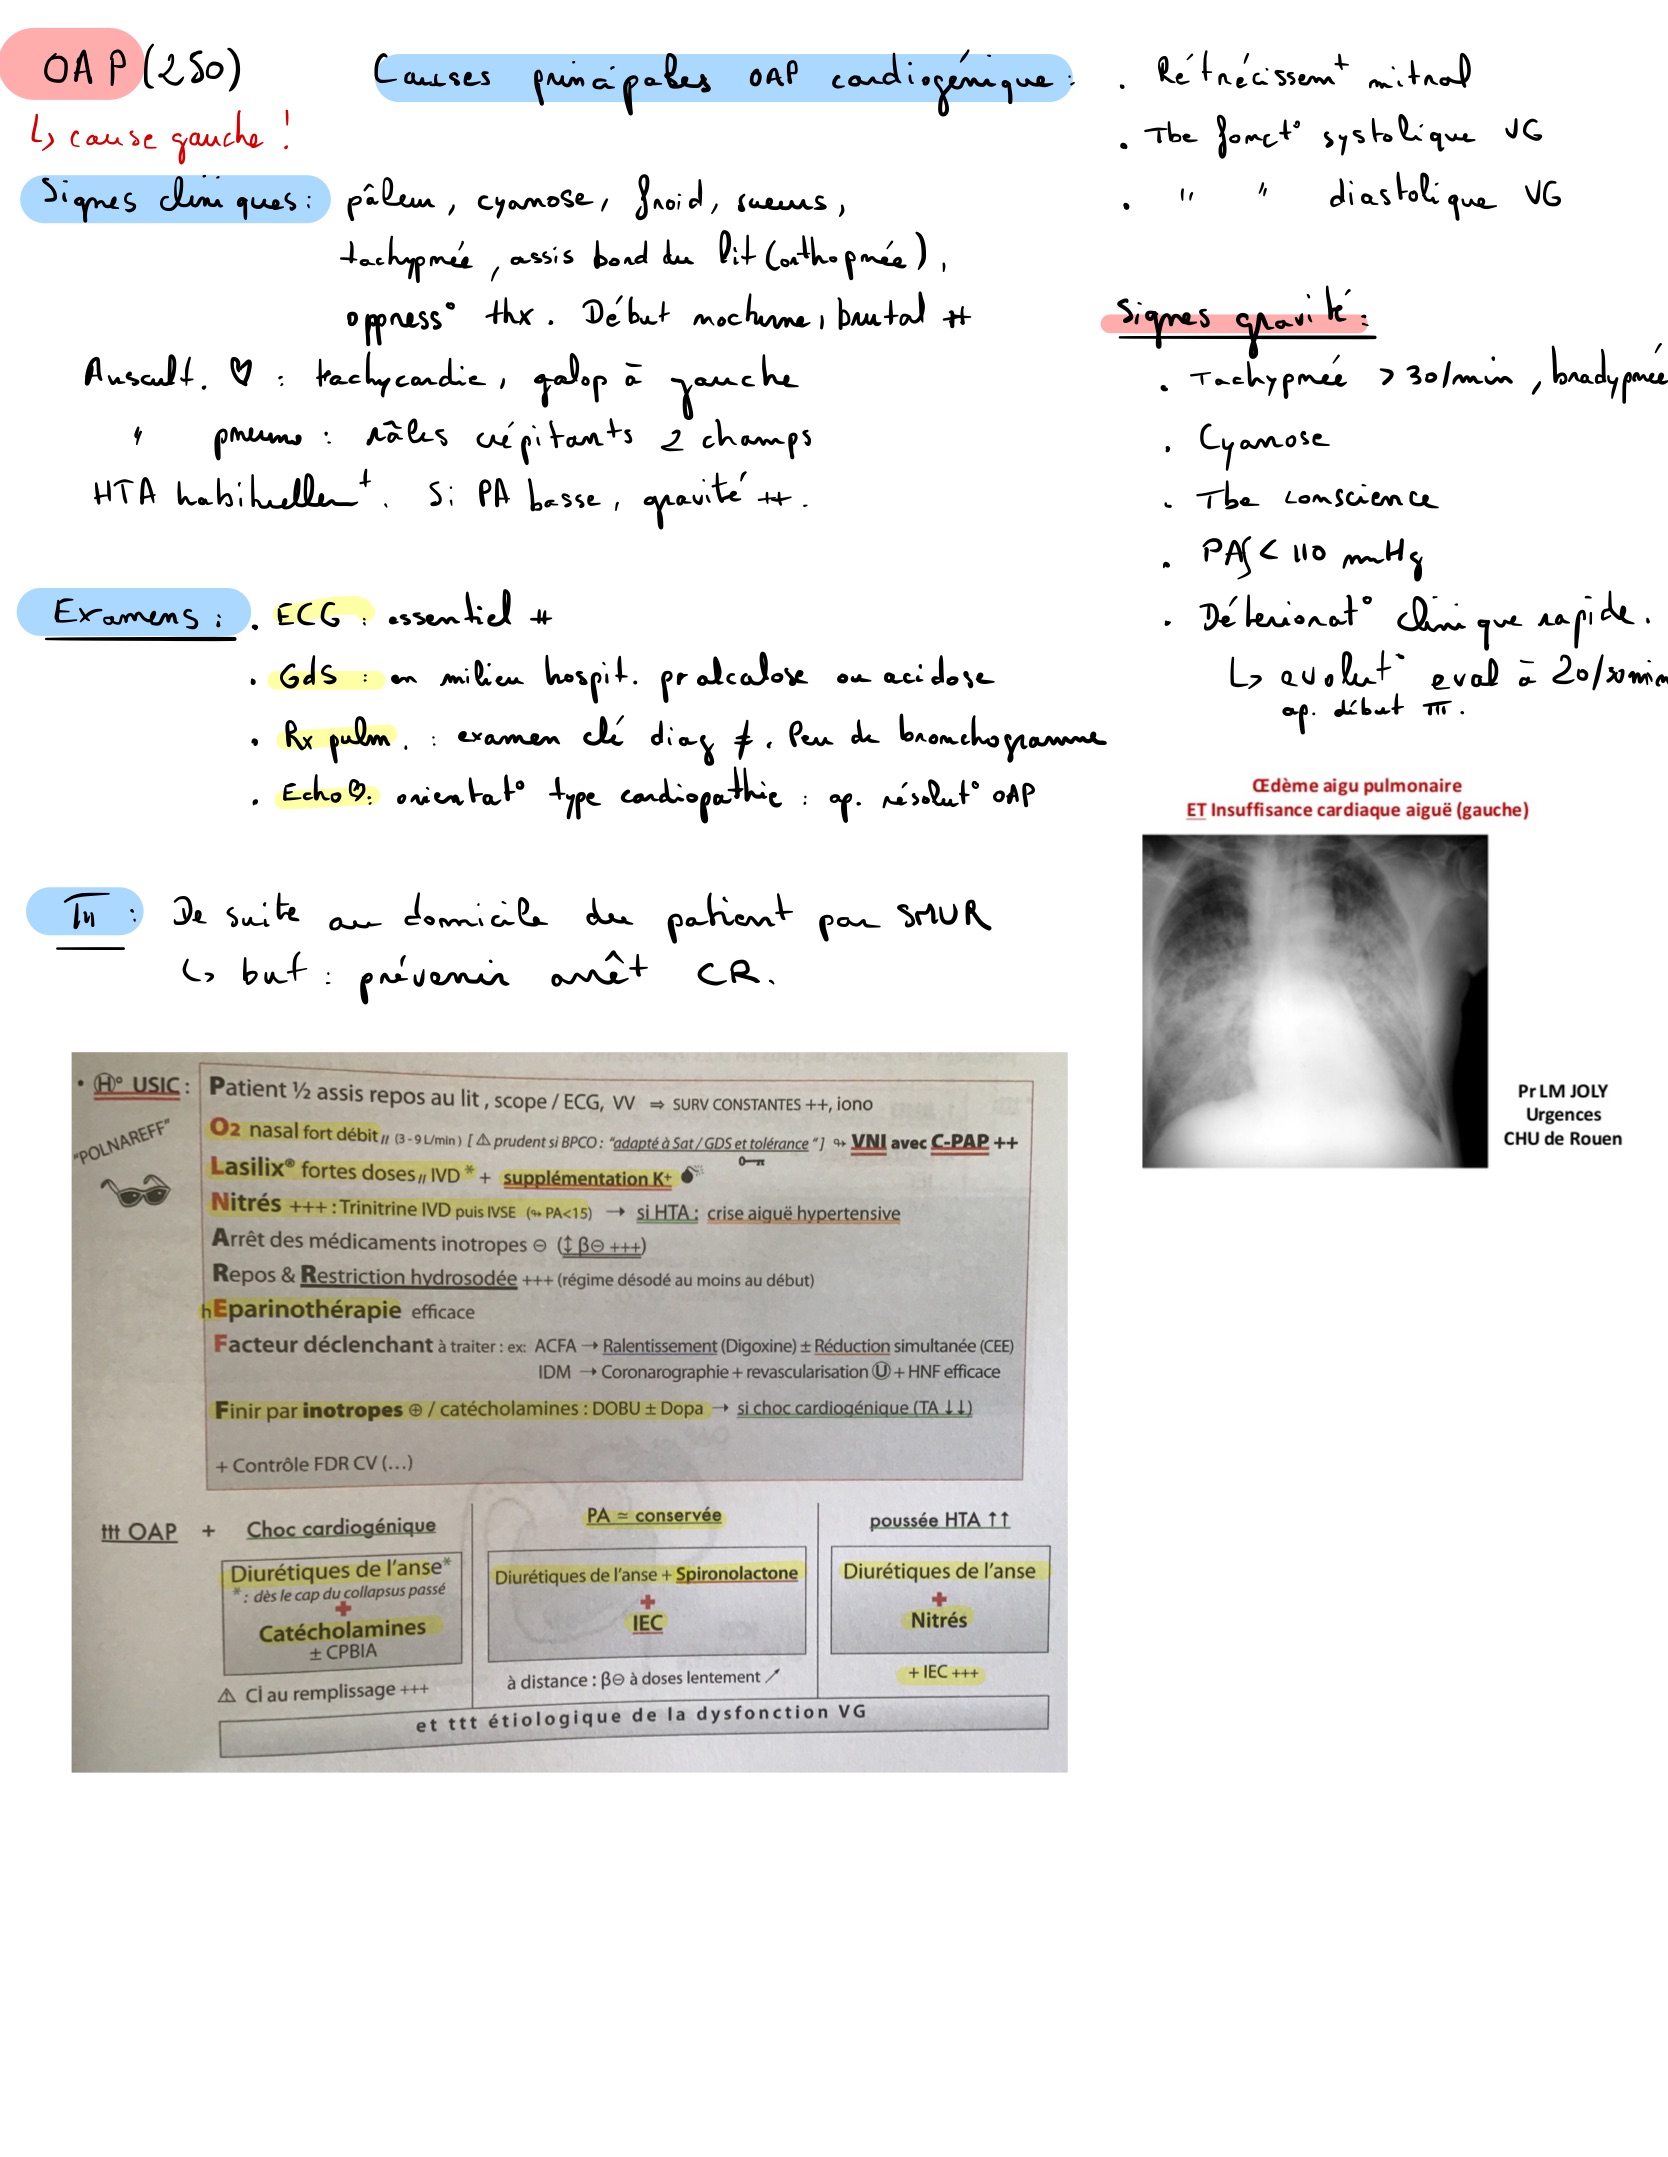 OAP (250)
↳ cause gauche !
Causes principales OAP cardiogénique :
. Rétrécissemt mitral
. Tbe fonct° systolique VG
. " " diastolique VG
Signes cliniques : pâleur, cyanose, froid, sueurs,
tachypnée, assis bord du lit (orthopnée),
oppress° thx. Début nocturne, brutal ++
Auscult. ♡ : tachycardie, galop à gauche
" pneumo : râles crépitants 2 champs
HTA habituellemt. Si PA basse, gravité ++.
Signes gravité :
. Tachypnée > 30/min, bradypnée
. Cyanose
. Tbe conscience
. PAS < 110 mmHg
. Déteriorat° clinique rapide.
↳ evolut° eval à 20/30min
ap. début TTT.
Examens : . ECG : essentiel ++
. GdS : en milieu hospit. pr alcalose ou acidose
. Rx pulm. : examen clé diag ≠. Peu de bronchogramme
. Echo♡ : orientat° type cardiopathie : ap. résolut° OAP
Œdème aigu pulmonaire
ET Insuffisance cardiaque aiguë (gauche)
Pr LM JOLY
Urgences
CHU de Rouen
De suite au domicile du patient par SMUR
↳ but : prévenir arrêt CR.
• H° USIC : Patient ½ assis repos au lit, scope / ECG, VV ⇒ SURV CONSTANTES ++, iono
"POLNAREFF"
O2 nasal fort débit // (3 - 9 L/min) [ ⚠ prudent si BPCO : "adapté à Sat / GDS et tolérance" ] ↬ VNI avec C-PAP ++
Lasilix® fortes doses // IVD * + supplémentation K+
Nitrés +++ : Trinitrine IVD puis IVSE (↬ PA<15) → si HTA : crise aiguë hypertensive
Arrêt des médicaments inotropes ⊖ (↕ β⊖ +++)
Repos & Restriction hydrosodée +++ (régime désodé au moins au début)
hEparinothérapie efficace
Facteur déclenchant à traiter : ex: ACFA → Ralentissement (Digoxine) ± Réduction simultanée (CEE)
IDM → Coronarographie + revascularisation Ⓤ + HNF efficace
Finir par inotropes ⊕ / catécholamines : DOBU ± Dopa → si choc cardiogénique (TA ↓↓)
+ Contrôle FDR CV (...)
ttt OAP + Choc cardiogénique
Diurétiques de l'anse*
* : dès le cap du collapsus passé
+
Catécholamines
± CPBIA
⚠ CI au remplissage +++
PA ≃ conservée
Diurétiques de l'anse + Spironolactone
+
IEC
à distance : β⊖ à doses lentement ↗
poussée HTA ↑↑
Diurétiques de l'anse
+
Nitrés
+ IEC +++
et ttt étiologique de la dysfonction VG